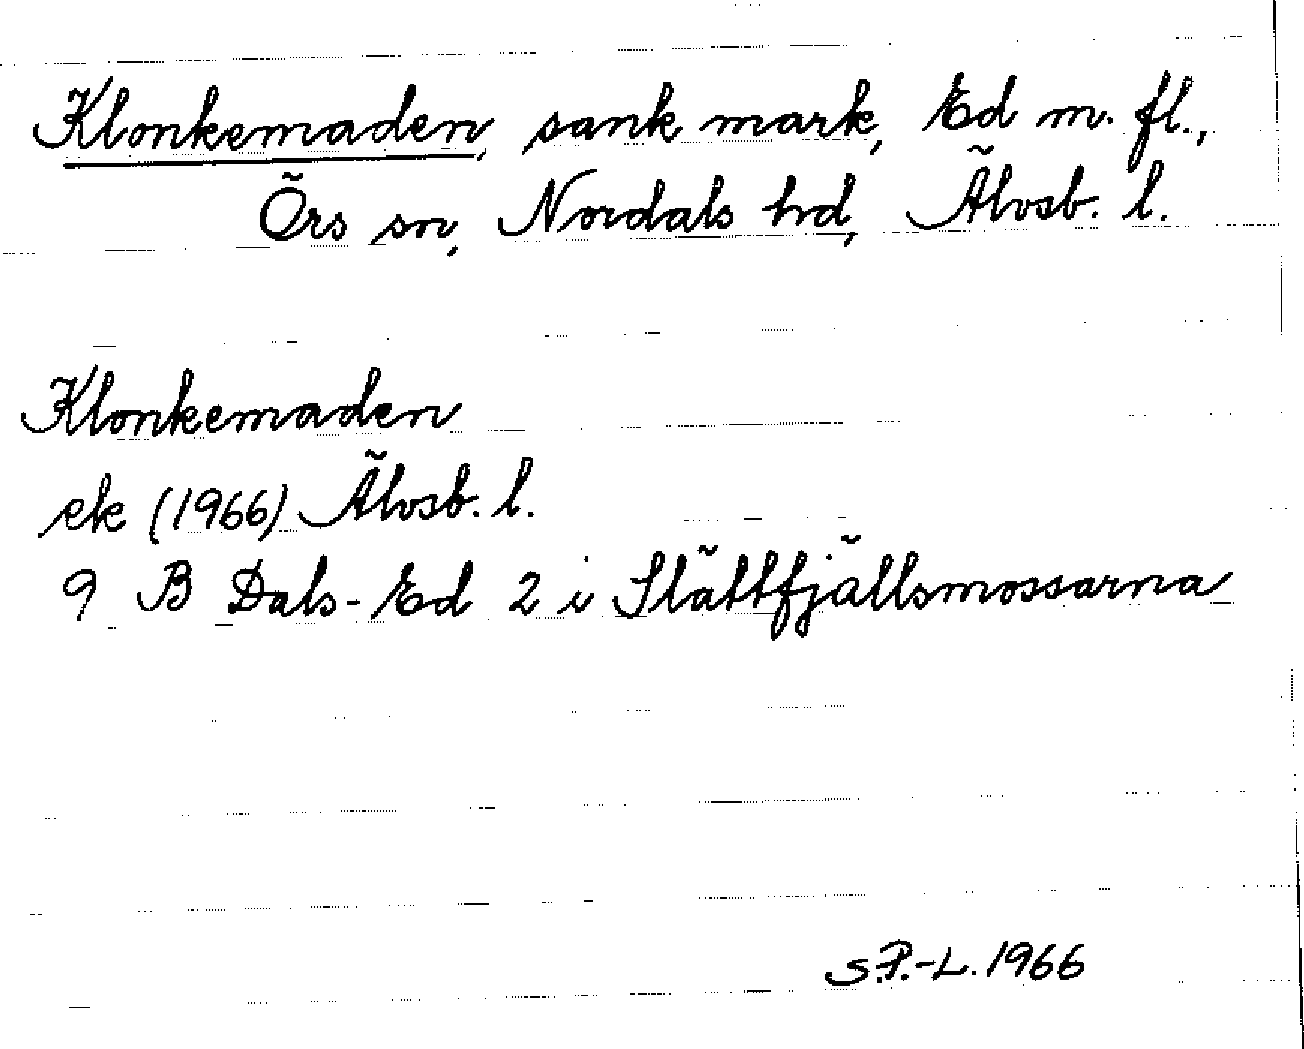 Klonkemaden, sank mark, Ed m. fl.,
Örs sn, Nordals hd, Älvsb. l.
Klonkemaden
ek (1966) Älvsb. l.
9 B Dals-Ed 2 i Slättfjällsmossarna
S.P.-L. 1966